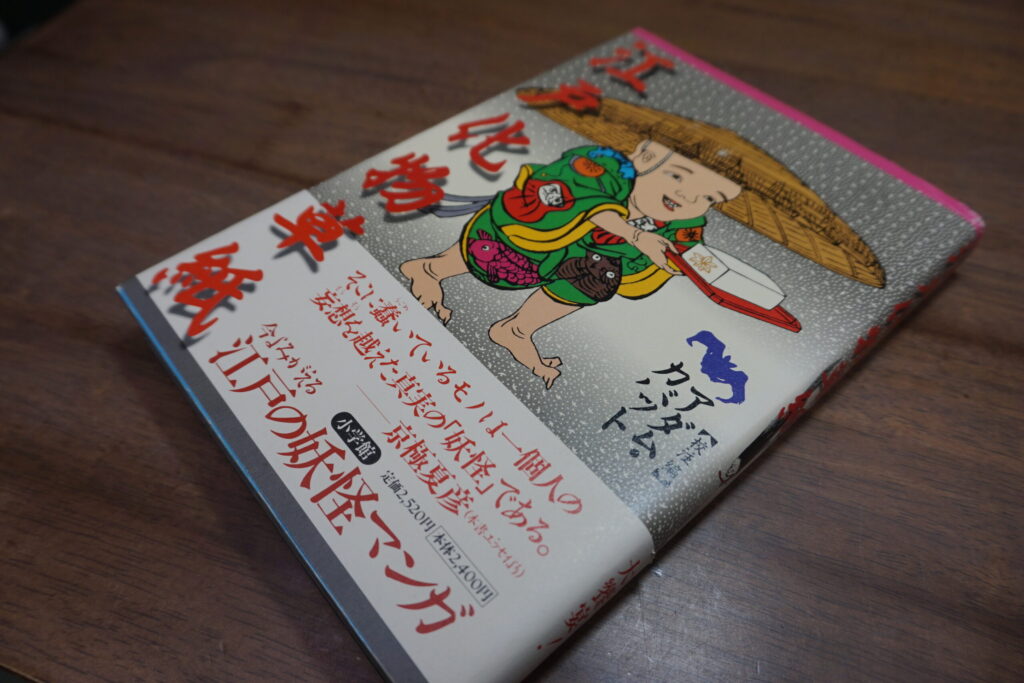 江戸化物草紙
アダム・
カバット
校注 編
そこに蠢いているモノは一個人の
妄想を越えた真実の「妖怪」である。
——京極夏彦(本書エッセイより)
今よみがえる
江戸の妖怪マンガ
小学館
定価2,520円 本体2,400円